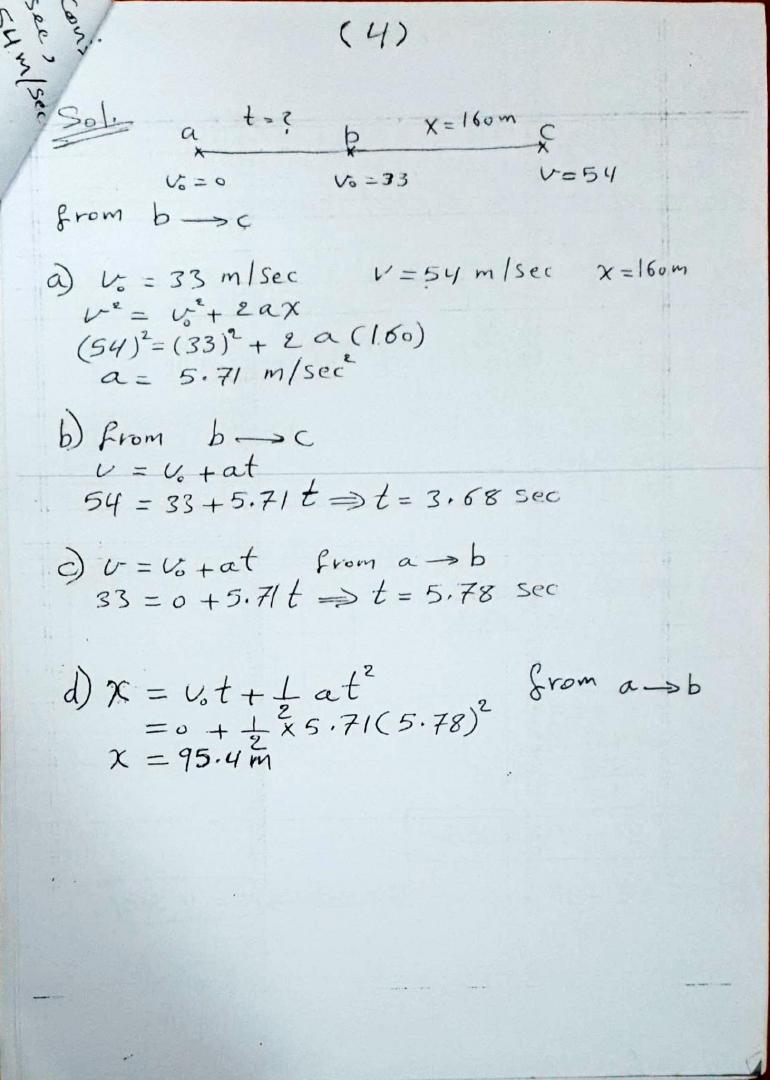 (4)
con
sec,
54 m/sec
Sol.
a t=? b x=160m c
v₀=0 v₀=33 v=54
from b → c
a) v₀ = 33 m/sec v=54 m/sec x=160m
v² = v₀² + 2ax
(54)² = (33)² + 2a(160)
a = 5.71 m/sec²
b) from b → c
v = v₀ + at
54 = 33 + 5.71 t ⇒ t = 3.68 sec
c) v = v₀ + at from a → b
33 = 0 + 5.71 t ⇒ t = 5.78 sec
d) x = v₀t + 1/2 at² from a → b
= 0 + 1/2 × 5.71(5.78)²
x = 95.4 m